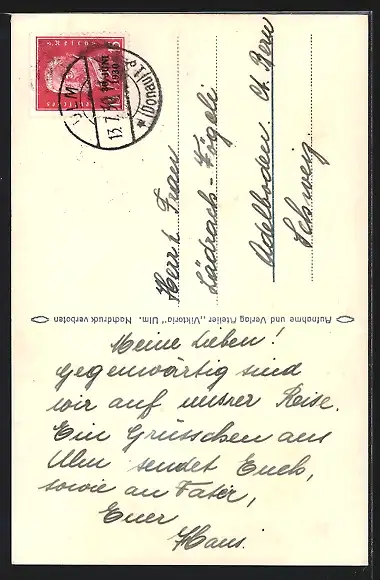 ULM
(Donau)
30. JUNI
1930
Herr & Frau
Lädrach-Figoli
Adelboden. Ct. Bern
Schweiz
Aufnahme und Verlag Atelier „Viktoria" Ulm. Nachdruck verboten
Meine Lieben!
Gegenwärtig sind
wir auf unsrer Reise.
Ein Grüsschen aus
Ulm sendet Euch,
sowie an Vater,
Euer
Hans.